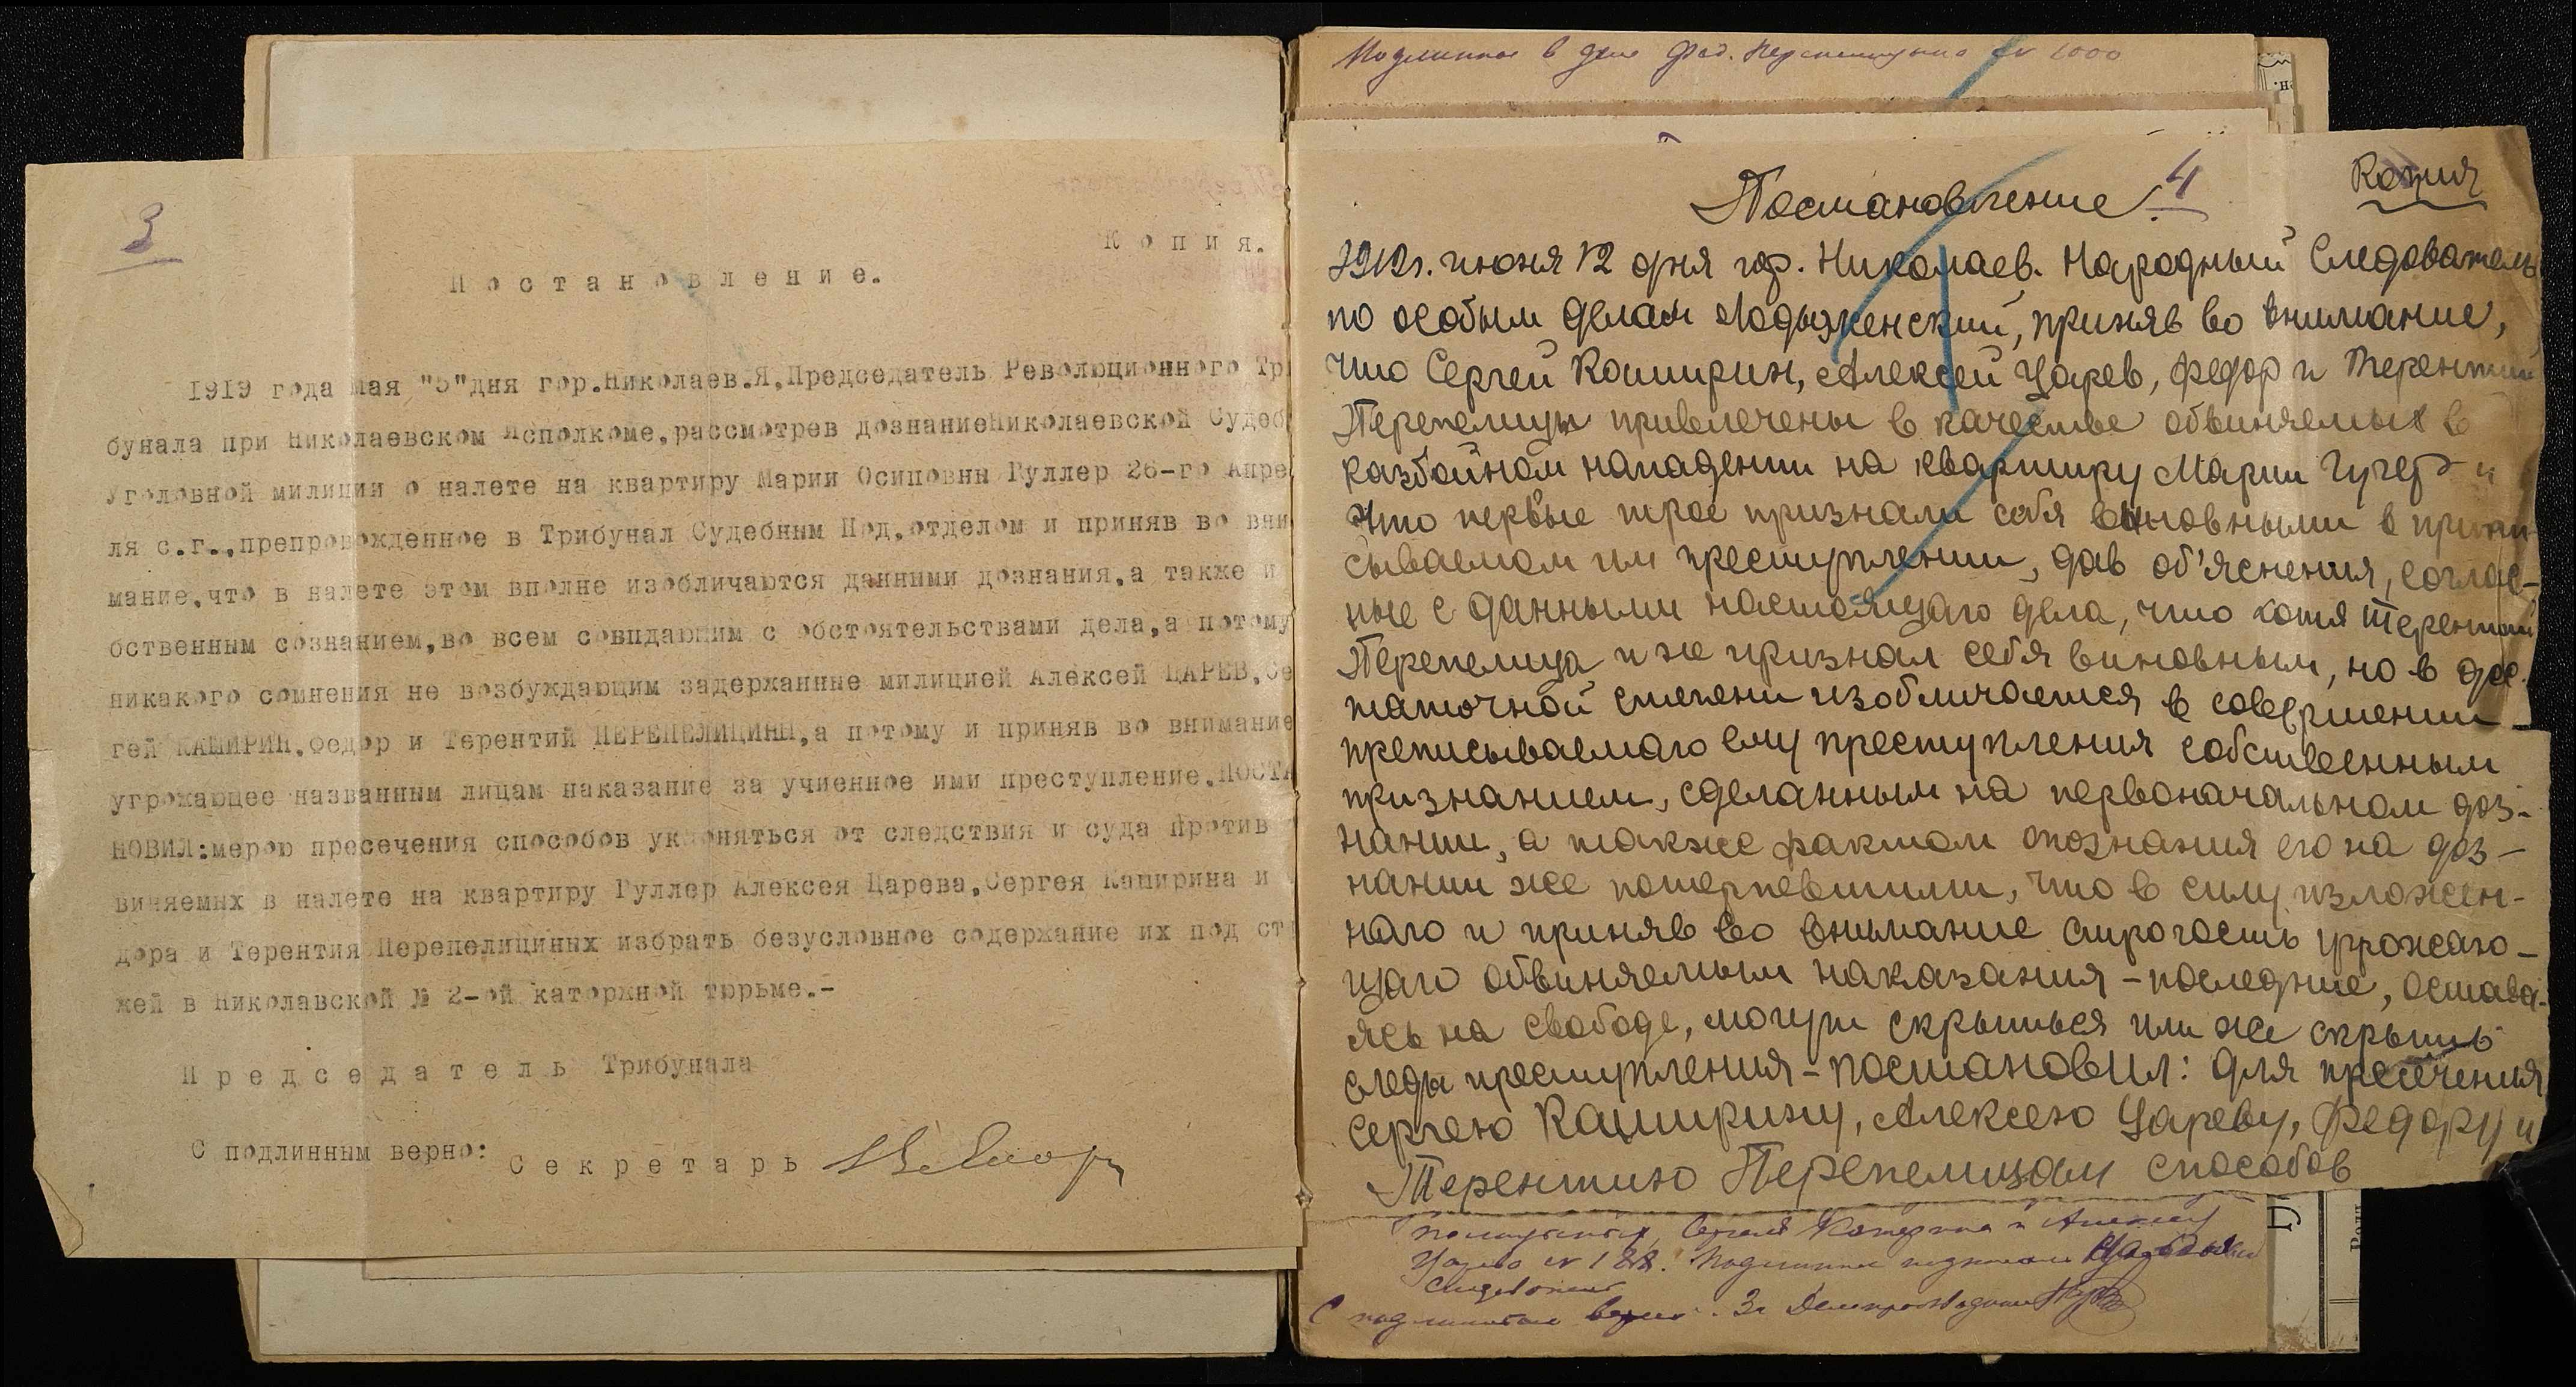 3
Копия.
Постановление.
1919 года мая "5"дня гор.Николаев.Я,Председатель Революционного Три
бунала при Николаевском Исполкоме,рассмотрев дознаниеНиколаевской Судеб
Уголовной милиции о налете на квартиру Марии Осиповны Гуллер 26-го Апре
ля с.г.,препровожденное в Трибунал Судебным Под,отделом и приняв во вни
мание,что в налете этом вполне изобличаются данными дознания,а также и
бственным сознанием,во всем совпдающим с обстоятельствами дела,а потому
никакого сомнения не возбуждающим задержанные милицией Алексей ЦАРЕВ,Се
гей КАШИРИН,Федор и Терентий ПЕРЕПЕЛИЦИНЫ,а потому и приняв во внимание
угрожающее названным лицам наказание за учиенное ими преступление,ПОСТА
НОВИЛ:мерою пресечения способов уклоняться от следствия и суда против
виняемых в налете на квартиру Гуллер Алексея Царева,Сергея Каширина и
дора и Терентия Перепелициных избрать безусловное содержание их под ст
жей в Николавской № 2-ой каторжной тюрьме.-
Председатель Трибунала
С подлинным верно: Секретарь
Подлинное в деле Фед. № 1000
4
Копия
Постановление.
1919г. июня 12 дня гор. Николаев. Народный Следователь
по особым делам Лодыженский, приняв во внимание,
что Сергей Каширин, Алексей Царев, Федор и Терентий
Перепелицы привлечены в качестве обвиняемых в
разбойном нападении на квартиру Марии Гулер и
что первые трое признали себя виновными в припи-
сываемом им преступлении, дав об'яснения, соглас-
ные с данными настоящаго дела, что хотя Терентий
Перепелица и не признал себя виновным, но в дос-
таточной степени изобличается в совершении
преписываемаго ему преступления собственным
признанием, сделанным на первоначальном доз-
нании, а также фактом опознания его на доз-
нании же потерпевшими, что в силу изложен-
наго и приняв во внимание строгость угрожаю-
щаго обвиняемым наказания - последние, остава-
ясь на свободе, могут скрыться или же скрыть
следы преступления - постановил: для пресечения
Сергею Каширину, Алексею Цареву, Федору и
Терентию Перепелицам способов
Сергея и Алексея
№ 188. Подлинное подписал Народный
Следователь
С подлинным верно: За Делопроизводителя